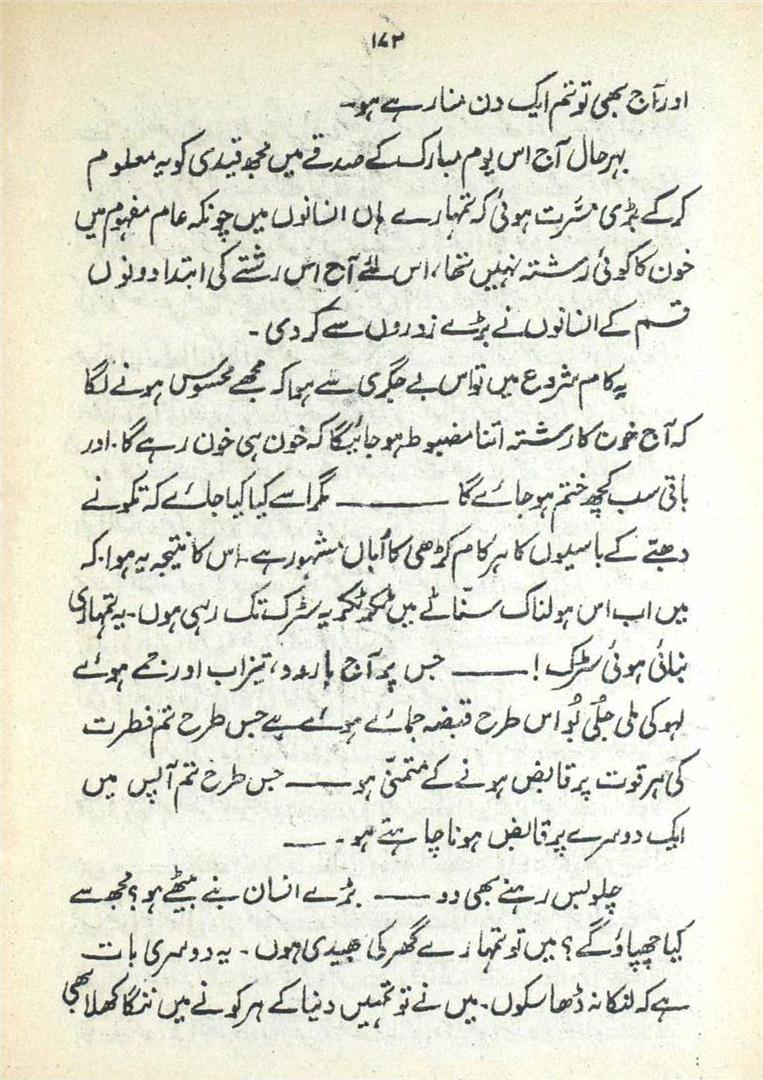 ۱۷۲
اور آج بھی تو تم ایک دن منا رہے ہو۔
بہرحال آج اس یوم مبارک کے صدقے میں مجھ قیدی کو یہ معلوم
کر کے بڑی مسّرت ہوئی کہ تمہارے ہاں انسانوں میں چونکہ عام مفہوم میں
خون کا کوئی رشتہ نہیں تھا، اس لئے آج اس رشتے کی ابتدا دونوں
قسم کے انسانوں نے بڑے زوروں سے کر دی۔
یہ کام شروع میں تو اس بے جگری سے ہوا کہ مجھے محسوس ہونے لگا
کہ آج خون کا رشتہ اتنا مضبوط ہو جائیگا کہ خون ہی خون رہے گا۔ اور
باقی سب کچھ ختم ہو جائے گا ——— مگر اسے کیا کیا جائے کہ تکونے
دھبّے کے باسیوں کا ہر کام کڑھی کا اُبال مشہور ہے۔ اس کا نتیجہ یہ ہوا۔ کہ
میں اب اس ہولناک سنّاٹے میں ٹکر ٹکر یہ سٹرک تک رہی ہوں۔ یہ تمہاری
بنائی ہوئی سٹرک! ——— جس پر آج بارود، تیزاب اور جمے ہوئے
لہو کی ملی جُلی بُو اس طرح قبضہ جمائے ہوئے ہے جس طرح تم فطرت
کی ہر قوت پر قابض ہونے کے متمنّی ہو ——— جس طرح تم آپس میں
ایک دوسرے پر قابض ہونا چاہتے ہو۔ —
چلو بس رہنے بھی دو ——— بڑے انسان بنے بیٹھے ہو؟ مجھ سے
کیا چھپاؤ گے؟ میں تو تمہارے گھر کی بھیدی ہوں۔ یہ دوسری بات
ہے کہ لنکا نہ ڈھا سکوں۔ میں نے تو تمہیں دنیا کے ہر کونے میں ننگا کھلا بھی